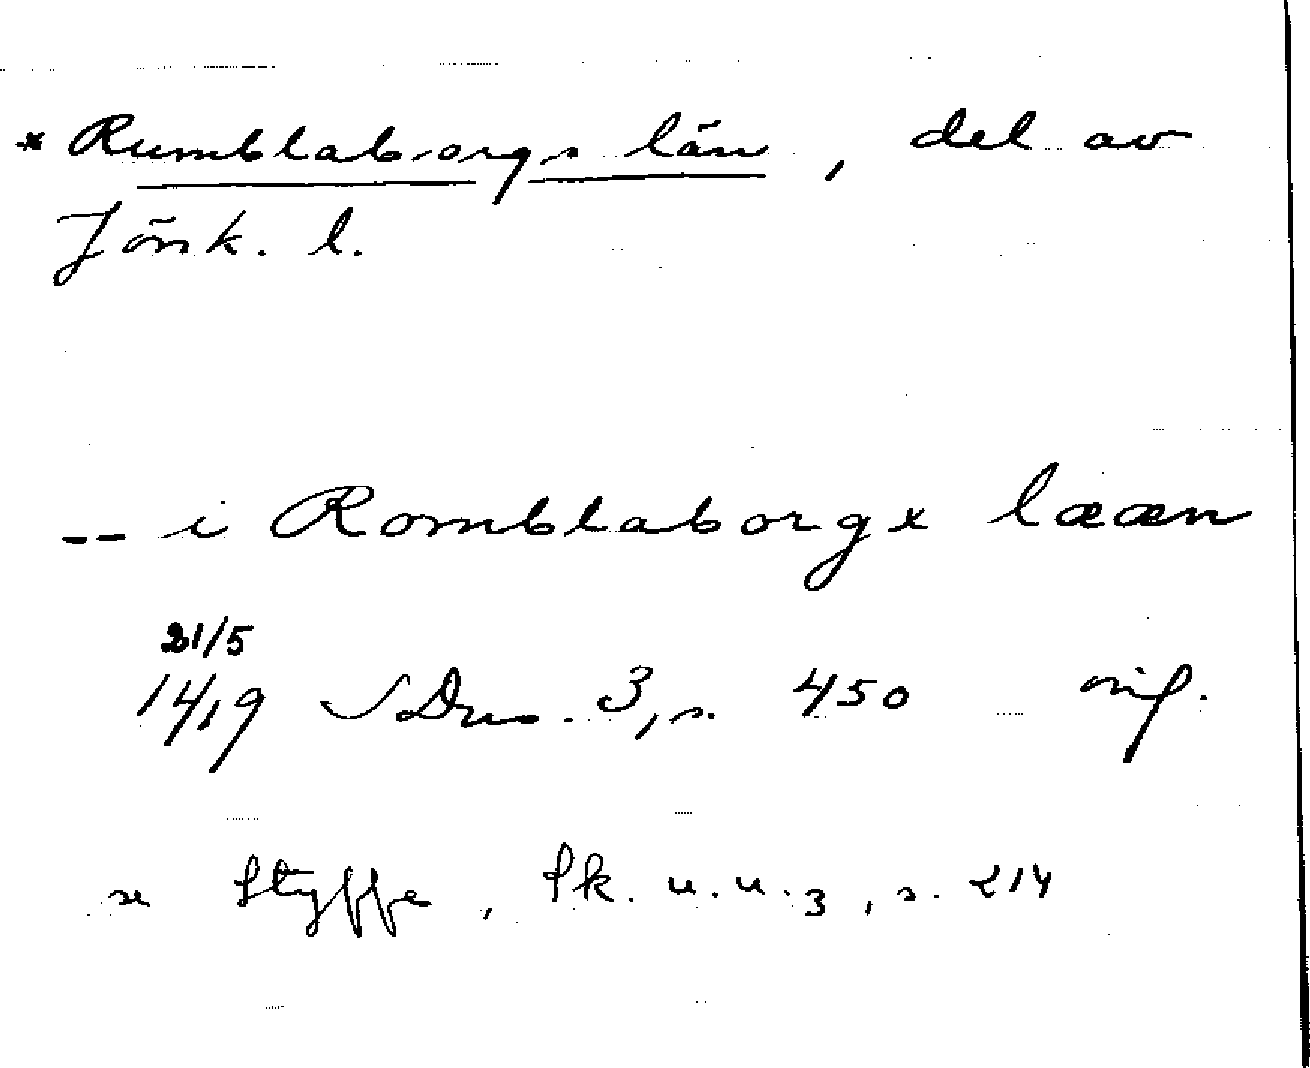 * Rumblaborgs län, del av
Jönk. l.
-- i Romblaborgx lææn
21/5
1419 SDns. 3, s. 450 orig.
se Styffe, Sk. u. u. 3, s. 214